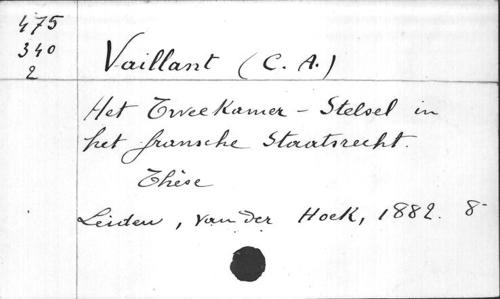 475
340
2
Vaillant (C. A.)
Het Tweekamer - Stelsel in
het fransche Staatsrecht.
Thèse
Leiden, van der Hoek, 1882. 8°